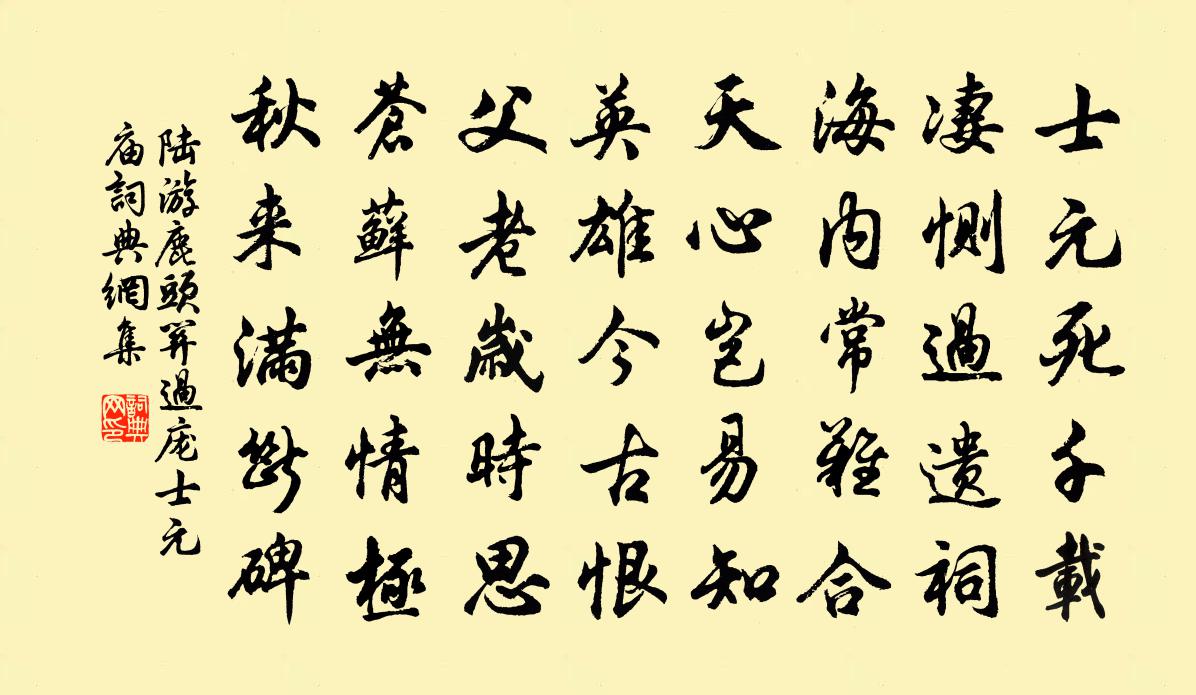 士元死千載
凄惻過遺祠
海内常難合
天心豈易知
英雄今古恨
父老歲時思
蒼蘚無情極
秋来滿斷碑
陆游鹿頭關過庞士元
庙詞典網集
詞典
网印